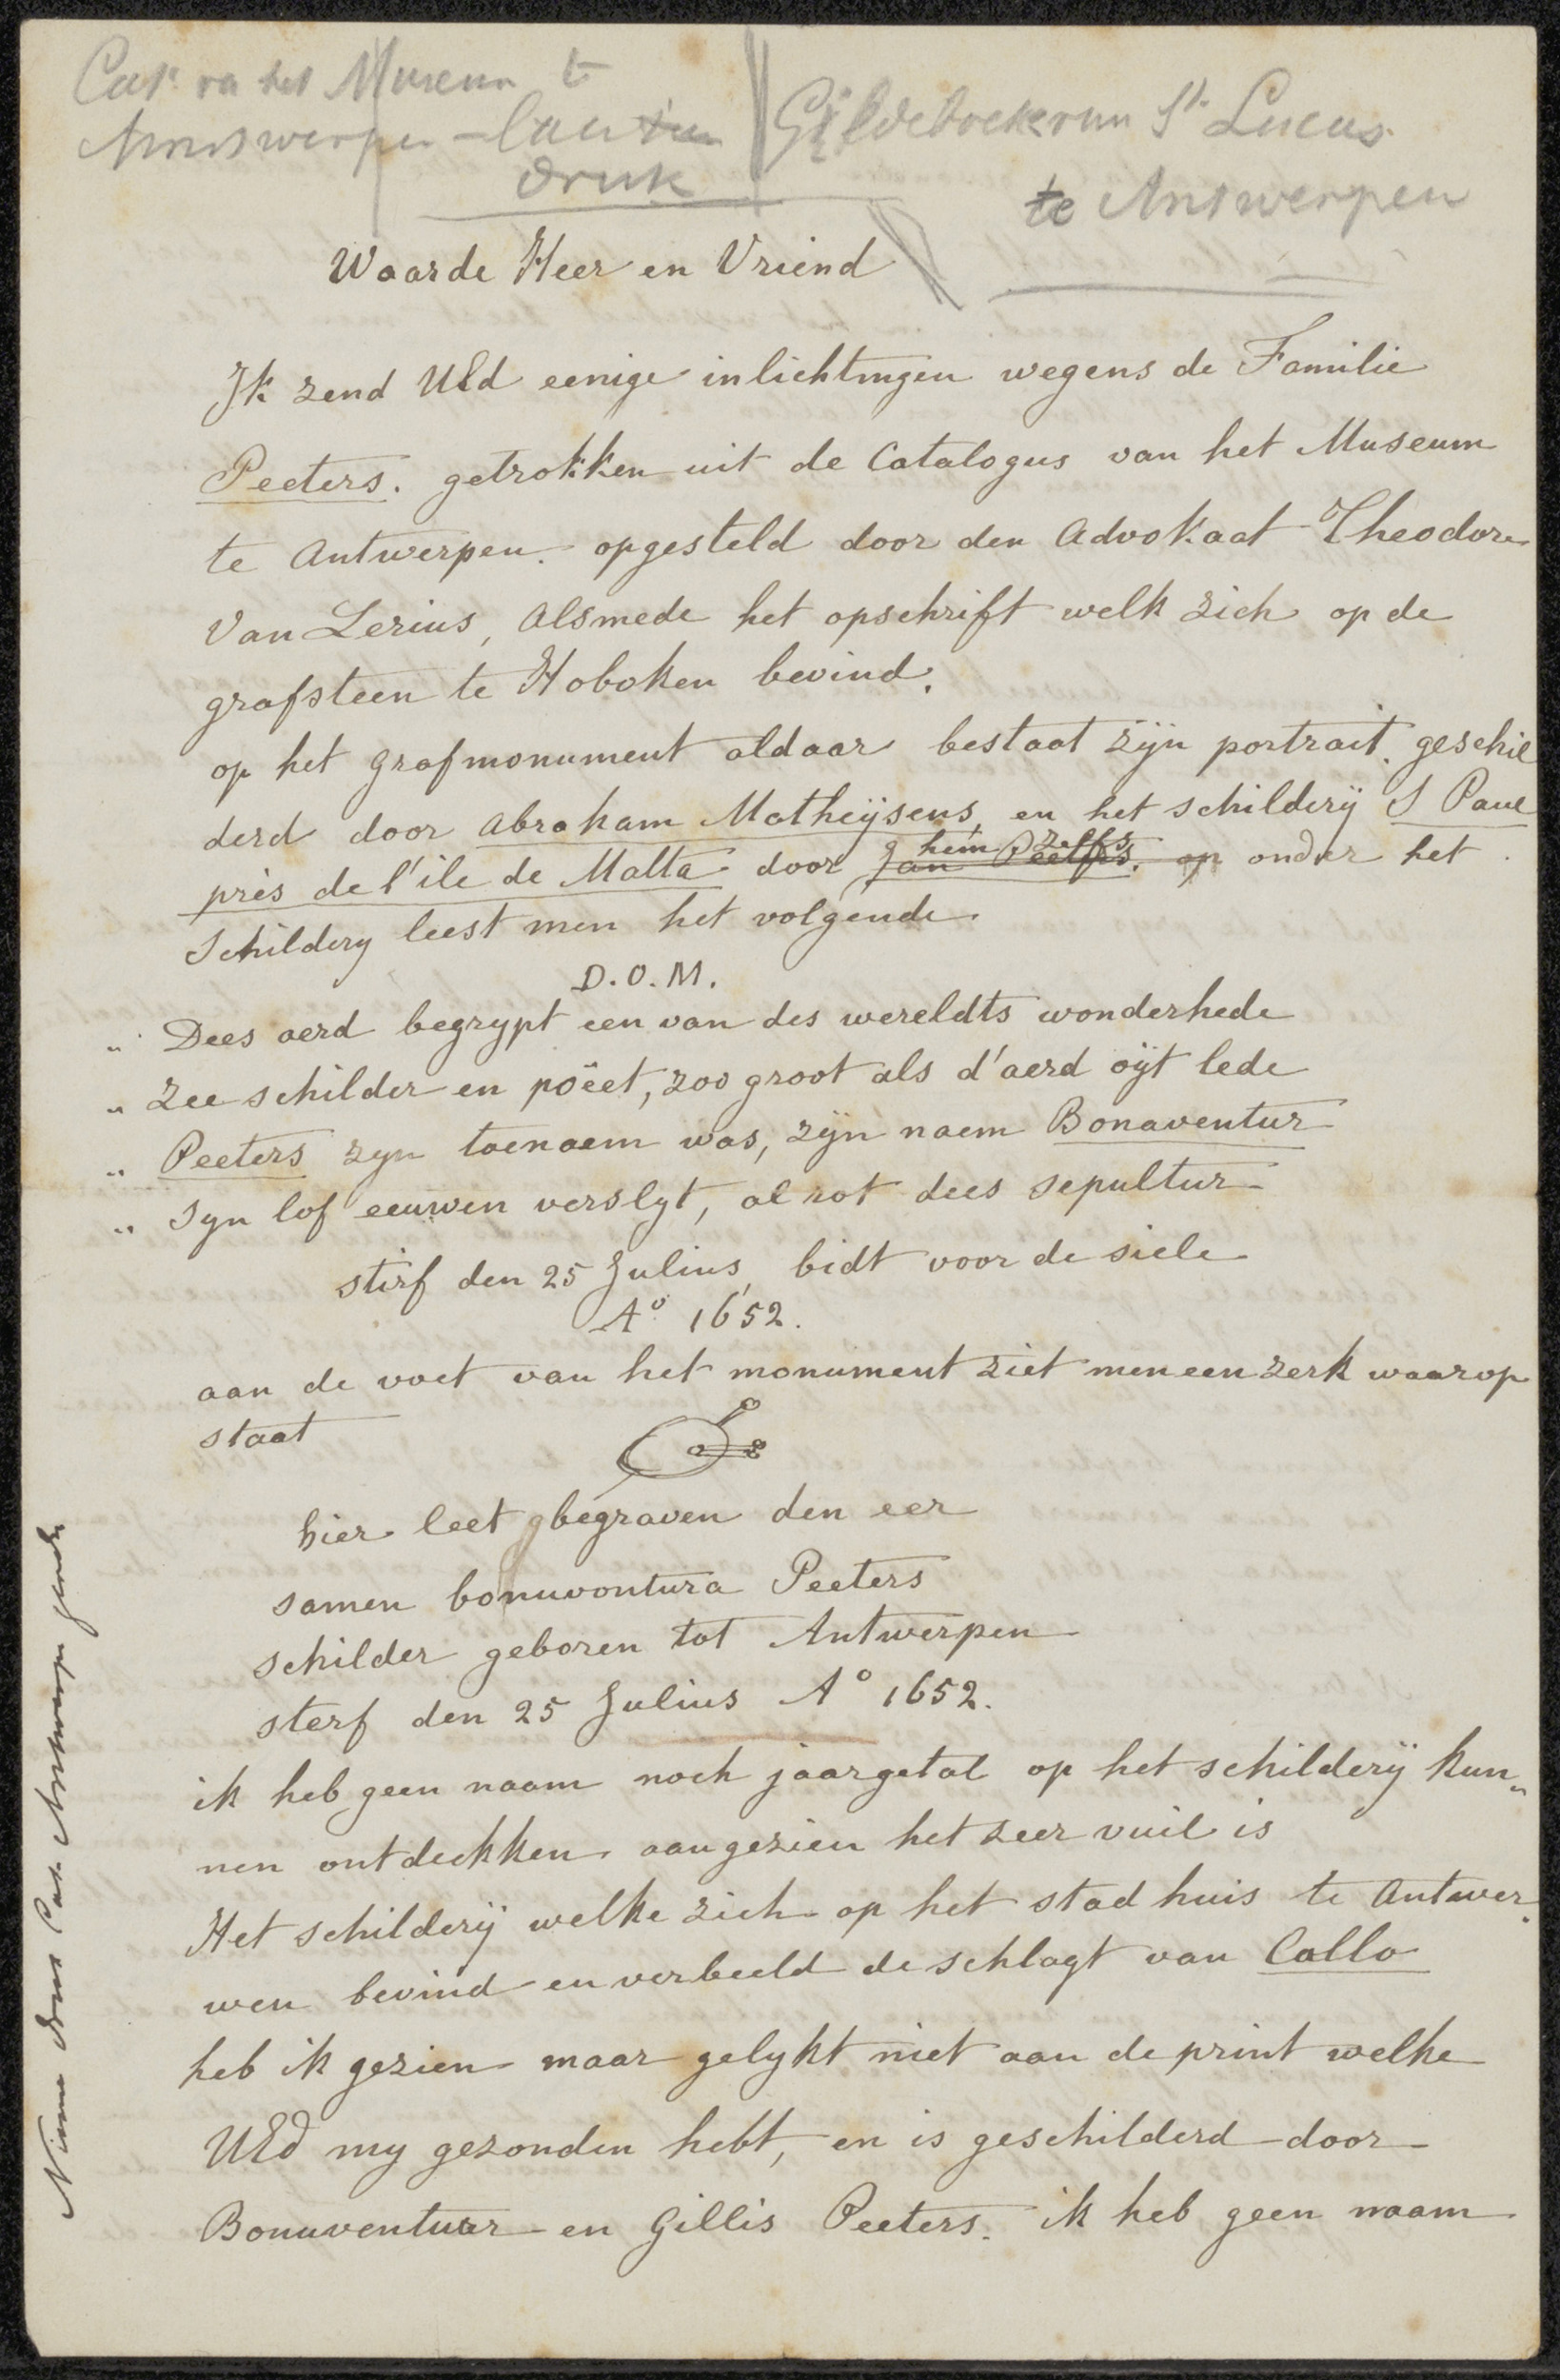 Cat. van het Museum te
Antwerpen – laatsten
druk
Gildeboek van St Lucas
te Antwerpen
Waarde Heer en Vriend
Ik zend UEd eenige inlichtingen wegens de Familie
Peeters. getrokken uit de Catalogus van het Museum
te Antwerpen. opgesteld door den Advokaat Theodore
Van Lerius, Alsmede het opschrift welk zich op de
grafsteen te Hoboken bevind.
op het grafmonument aldaar bestaat zÿn portrait. geschil
derd door Abraham Matheÿsens, en het schilderÿ S Paul
près de l'ile de Malta door Jan Peeters. hem zelfs op onder het
Schildery leest men het volgende.
D.O.M.
" Dees aerd begrypt een van des wereldts wonderhede
" Zee schilder en poëet, zoo groot als d'aerd oÿt lede
" Peeters zyn toenaem was, zÿn naem Bonaventur
" Syn lof eeuwen verslyt, al rot dees sepultur
stirf den 25 Julius, bidt voor de siele
Aº 1652.
aan de voet van het monument ziet men een zerk waarop
staat
hier leet gbegraven den eer
samen bonuvontura Peeters
schilder geboren tot Antwerpen
sterf den 25 Julius Aº 1652.
ik heb geen naam noch jaargetal op het schilderÿ kun„
nen ontdekken aangezien het zeer vuil is
Het schilderÿ welke zich op het stadhuis te Antwer„
wen bevind en verbeeld de schlagt van Callo
heb ik gezien maar gelykt niet aan de print welke
UEd my gezonden hebt, en is geschilderd door
Bonuventuur en Gillis Peeters. ik heb geen naam
Cat. Antwerpen